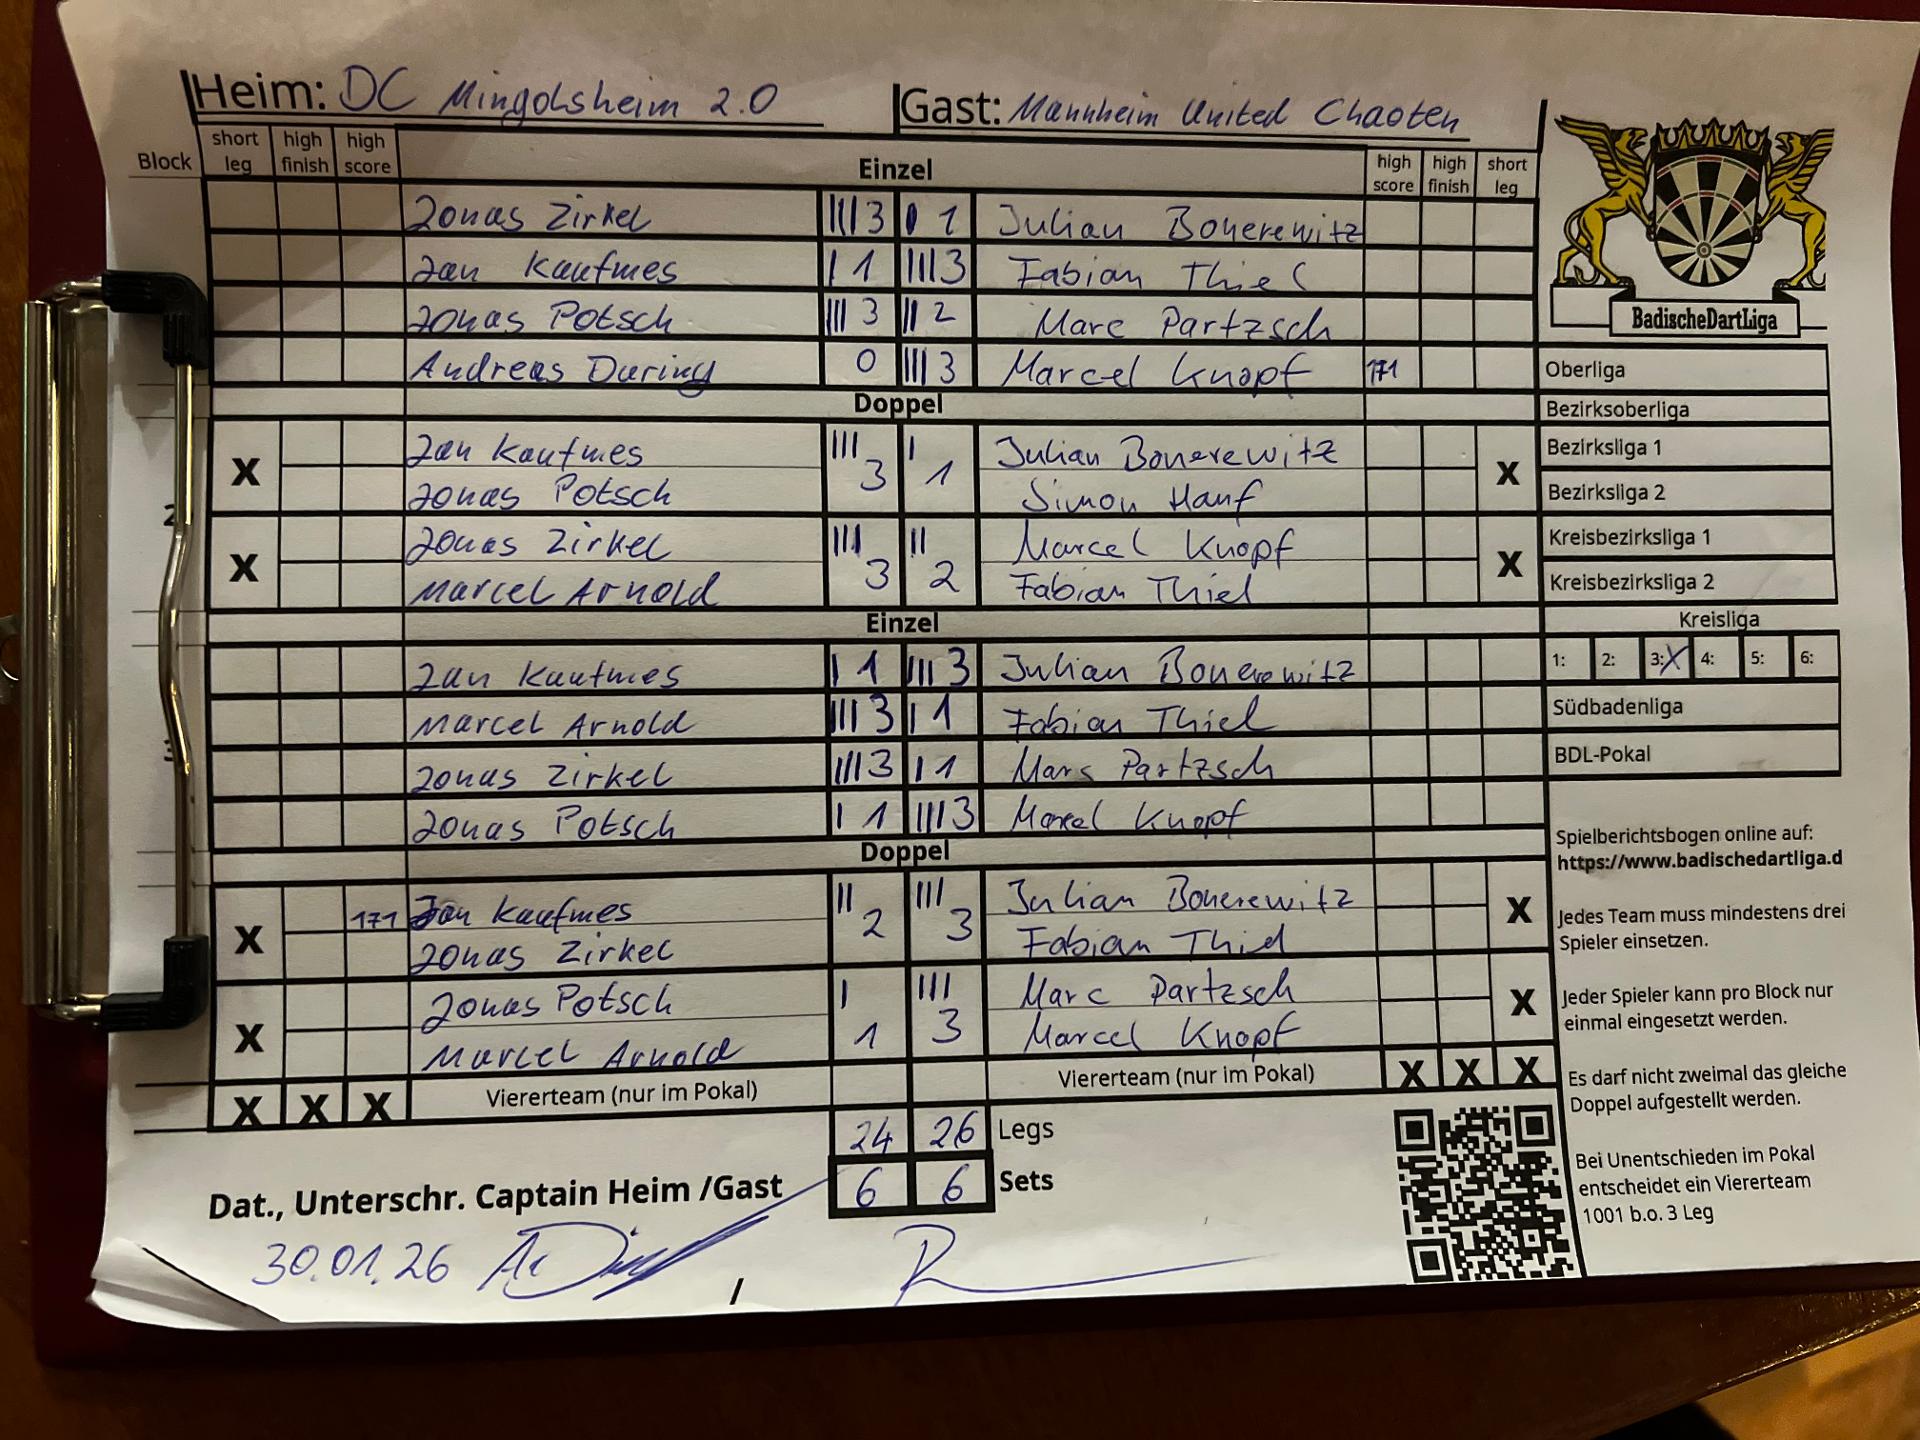 Heim: DC Mingolsheim 2.0 Gast: Mannheim United Chaoten
Block short leg high finish high score Einzel high score high finish short leg
Jonas Zirkel III 3 I 1 Julian Bonerewitz
Jan Kaufmes I 1 III 3 Fabian Thiel
Jonas Potsch III 3 II 2 Marc Partzsch
Andreas During 0 III 3 Marcel Knopf 171
Doppel
X Jan Kaufmes III 3 I 1 Julian Bonerewitz X
Jonas Potsch Simon Hanf
X Jonas Zirkel III 3 II 2 Marcel Knopf X
Marcel Arnold Fabian Thiel
Einzel
Jan Kaufmes I 1 III 3 Julian Bonerewitz
Marcel Arnold III 3 I 1 Fabian Thiel
Jonas Zirkel III 3 I 1 Marc Partzsch
Jonas Potsch I 1 III 3 Marcel Knopf
Doppel
X 171 Jan Kaufmes II 2 III 3 Julian Bonerewitz X
Jonas Zirkel Fabian Thiel
X Jonas Potsch I 1 III 3 Marc Partzsch X
Marcel Arnold Marcel Knopf
X X X Viererteam (nur im Pokal) Viererteam (nur im Pokal) X X X
24 26 Legs
6 6 Sets
Dat., Unterschr. Captain Heim /Gast
30.01.26 /
BadischeDartLiga
Oberliga
Bezirksoberliga
Bezirksliga 1
Bezirksliga 2
Kreisbezirksliga 1
Kreisbezirksliga 2
Kreisliga
1: 2: 3: X 4: 5: 6:
Südbadenliga
BDL-Pokal
Spielberichtsbogen online auf:
https://www.badischedartliga.d
Jedes Team muss mindestens drei
Spieler einsetzen.
Jeder Spieler kann pro Block nur
einmal eingesetzt werden.
Es darf nicht zweimal das gleiche
Doppel aufgestellt werden.
Bei Unentschieden im Pokal
entscheidet ein Viererteam
1001 b.o. 3 Leg